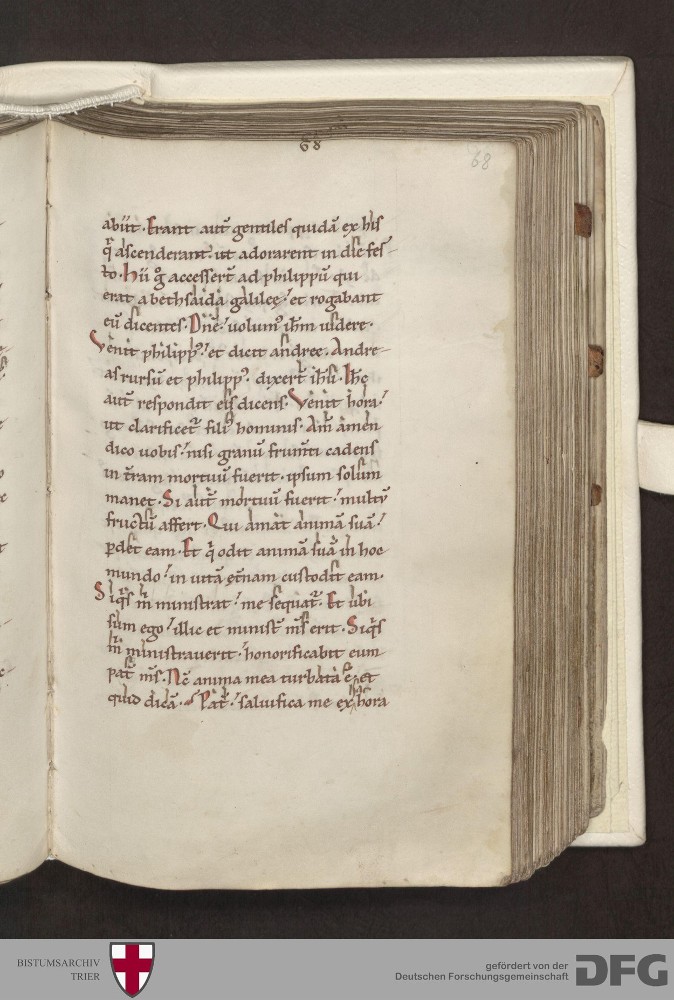 68
68
abiit. Erant aut̄ gentiles quidā ex his
q̄ ascenderant. ut adorarent in die fes-
to. Hii g̊ accesserт̄ ad philippū qui
erat a bethsaida galilee. et rogabant
eū dicentes. Dn̄e. uolum᷒ ihm̄ uidere.
Venit philipp᷒. et dicit andree. Andre-
as rursū et philipp᷒. dixert̄ ih̄u. Ih̄c
aut̄ respondit eis dicens. Venit hora.
ut clarificet᷑ fili᷒ hominis. Am̄ amen
dico uobis. nisi granū frum̄ti cadens
in t̄ram mortuū fuerit. ipsum solum
manet. Si aut̄ mortuū fuerit. multū
fructū affert. Qui amat animā suā.
ꝑdet eam. Et q̄ odit animā suā in hoc
mundo. in uitā et̄nam custodit eam.
Siq̄s m̄ ministrat. me sequat᷑. Et ubi
sum ego. illic et minist᷑ ms̄ erit. Siq̄s
m̄ ministrauerit. honorificabit eum
pat᷑ ms̄. Nc̄ anima mea turbata ē. et
quid dicā. Pat᷑. saluifica me ex hora
BISTUMSARCHIV
TRIER
gefördert von der
Deutschen Forschungsgemeinschaft
DFG